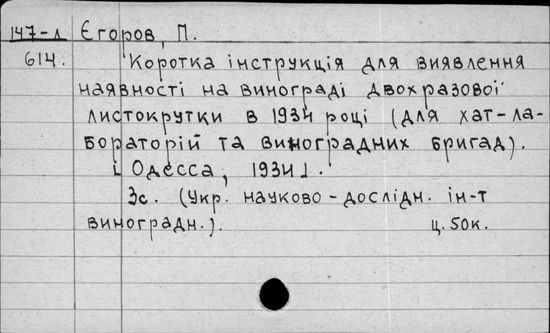 147-л Єгоров, П.
614. Коротка інструкція для виявлення
наявності на винограді двохразової
листокрутки в 1934 році (для хат-ла-
бораторій та виноградних бригад).
[Одесса, 1934].
3с. (Укр. науково-дослідн. ін-т
виноградн.). ц. 50к.